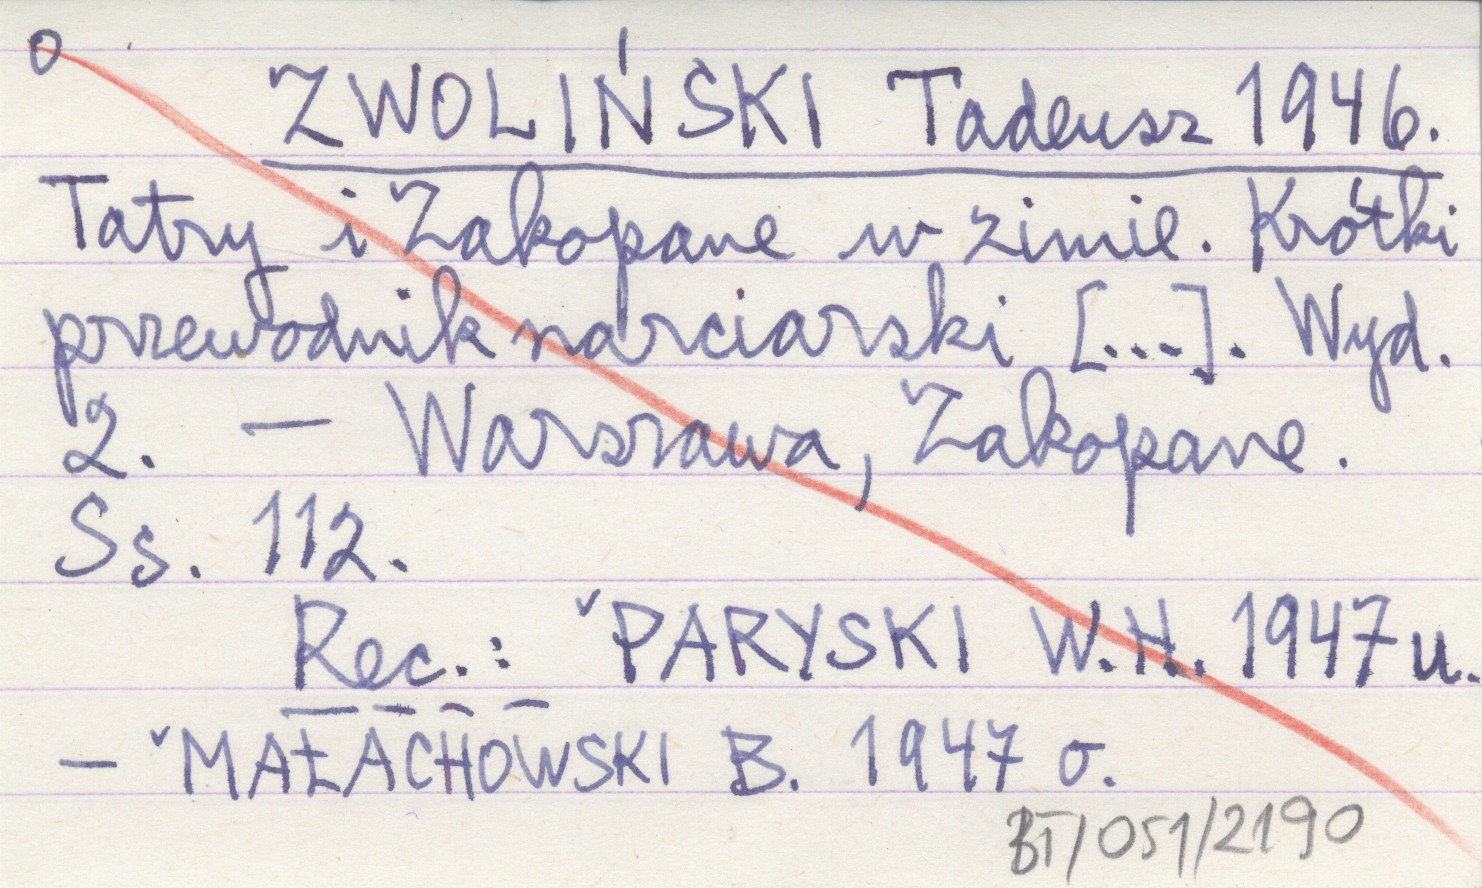 o
ZWOLIŃSKI Tadeusz 1946.
Tatry i Zakopane w zimie. Krótki
przewodnik narciarski [...]. Wyd.
2. — Warszawa, Zakopane.
Ss. 112.
Rec.: ˇPARYSKI W.H. 1947 u.
— ˇMAŁACHOWSKI B. 1947 o.
BT/051/2190